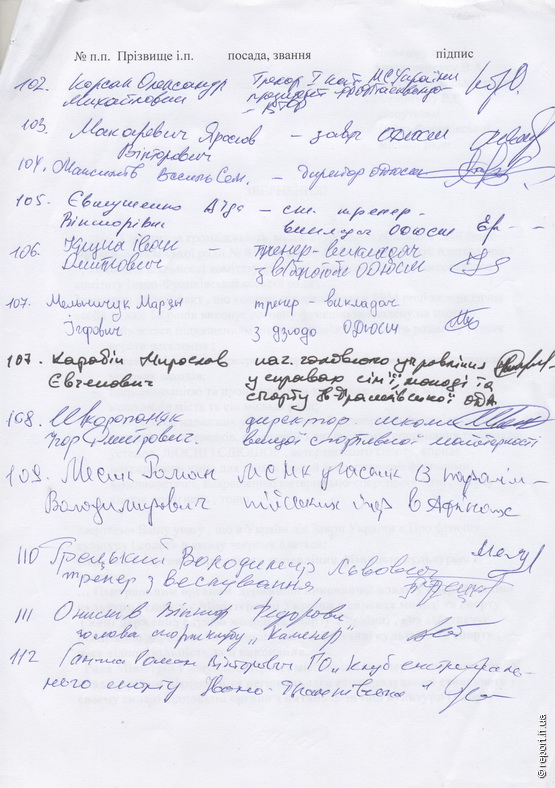 № п.п. Прізвище і.п. посада, звання підпис
102. Корсак Олександр Тренер І кат. МС України
Михайлович президент
103. Макаревич Ярослав – завуч ОДЮСШ
Вікторович
104. Максимів Василь Сем. – директор
105. Євтушенко Аїда – ст. тренер-
Вікторівна викладач ОДЮСШ
106. Куцик Іван – тренер-викладач
Дмитрович
107. Мельничук Мар'ян тренер – викладач
Ігорович з дзюдо ОДЮСШ
107. Карабін Мирослав нач. головного управління
Євгенович у справах сім'ї, молоді та
спорту Ів-Франківської ОДА
108. Шкоропаняк директор школи
Ігор Дмитрович. вищої спортивної майстерності
109. Месик Роман МСМК учасник 13 паралім-
Володимирович пійських ігор в Афінах
110 Грецький Володимир Львович
тренер з веслування
111 Онисків Віктор Федорович
голова спортклубу „Каменяр"
112 Роман Вікторович ГО „Клуб екстремаль-
ного спорту Івано-Франківська"
© report.if.ua